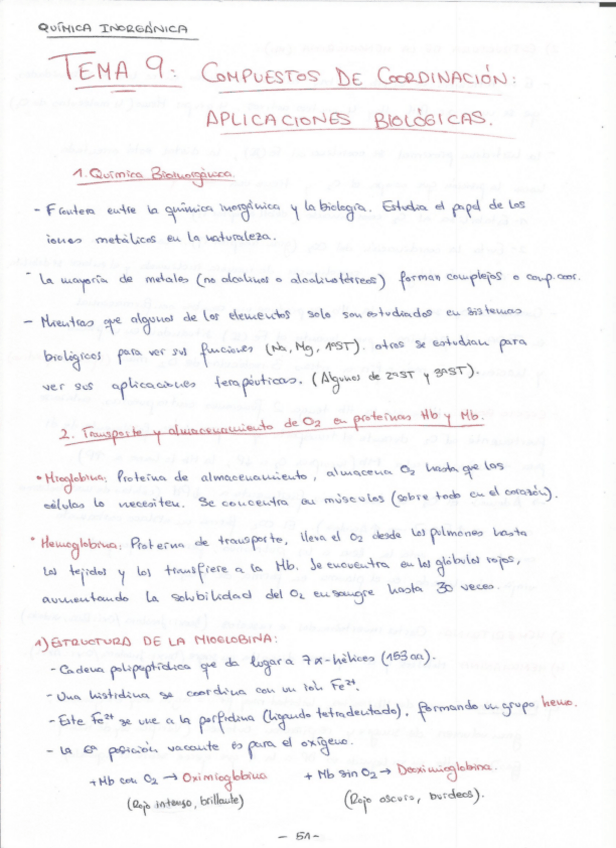 QUÍMICA INORGÁNICA
TEMA 9: COMPUESTOS DE COORDINACIÓN:
APLICACIONES BIOLÓGICAS.
1. Química Bioinorgánica.
- Frontera entre la química inorgánica y la biología. Estudia el papel de los
iones metálicos en la naturaleza.
- La mayoría de metales (no alcalinos o alcalinotérreos) forman complejos o comp. coor.
- Mientras que algunos de los elementos solo son estudiados en sistemas
biológicos para ver sus funciones (Na, Mg, 1ªST). otros se estudian para
ver sus aplicaciones terapéuticas. (Algunos de 2ªST y 3ªST).
2. Transporte y almacenamiento de O2 en proteínas Hb y Mb.
• Mioglobina: Proteína de almacenamiento, almacena O2 hasta que las
células lo necesiten. Se concentra en músculos (sobre todo en el corazón).
• Hemoglobina: Proteína de transporte, lleva el O2 desde los pulmones hasta
los tejidos y los transfiere a la Mb. Se encuentra en los glóbulos rojos,
aumentando la solubilidad del O2 en sangre hasta 30 veces.
1) ESTRUCTURA DE LA MIOGLOBINA:
- Cadena polipeptídica que da lugar a 7 α-hélices (153 aa).
- Una histidina se coordina con un ión Fe2+.
- Este Fe2+ se une a la porfidina (ligando tetradentado), formando un grupo hemo.
- La 6ª posición vacante es para el oxígeno.
+ Mb con O2 → Oximioglobina + Mb sin O2 → Deoximioglobina.
(Rojo intenso, brillante) (Rojo oscuro, burdeos).
- 51 -